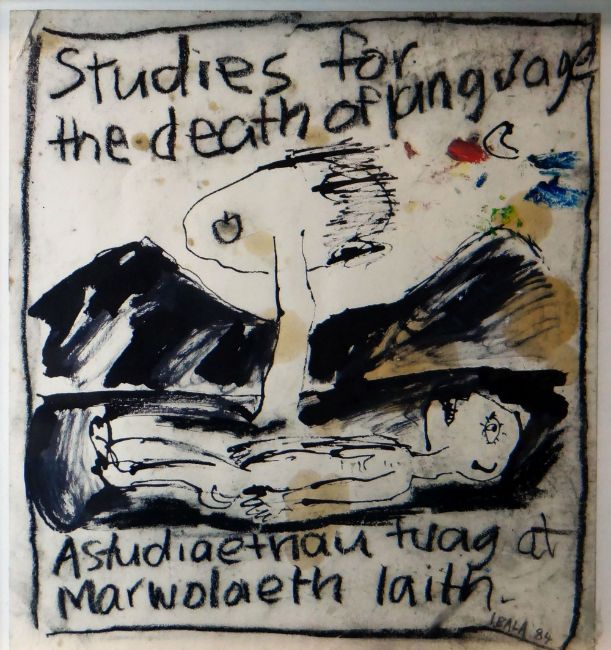 Studies for
the death of language
Astudiaethau tuag at
Marwolaeth Iaith.
I.BALA '84